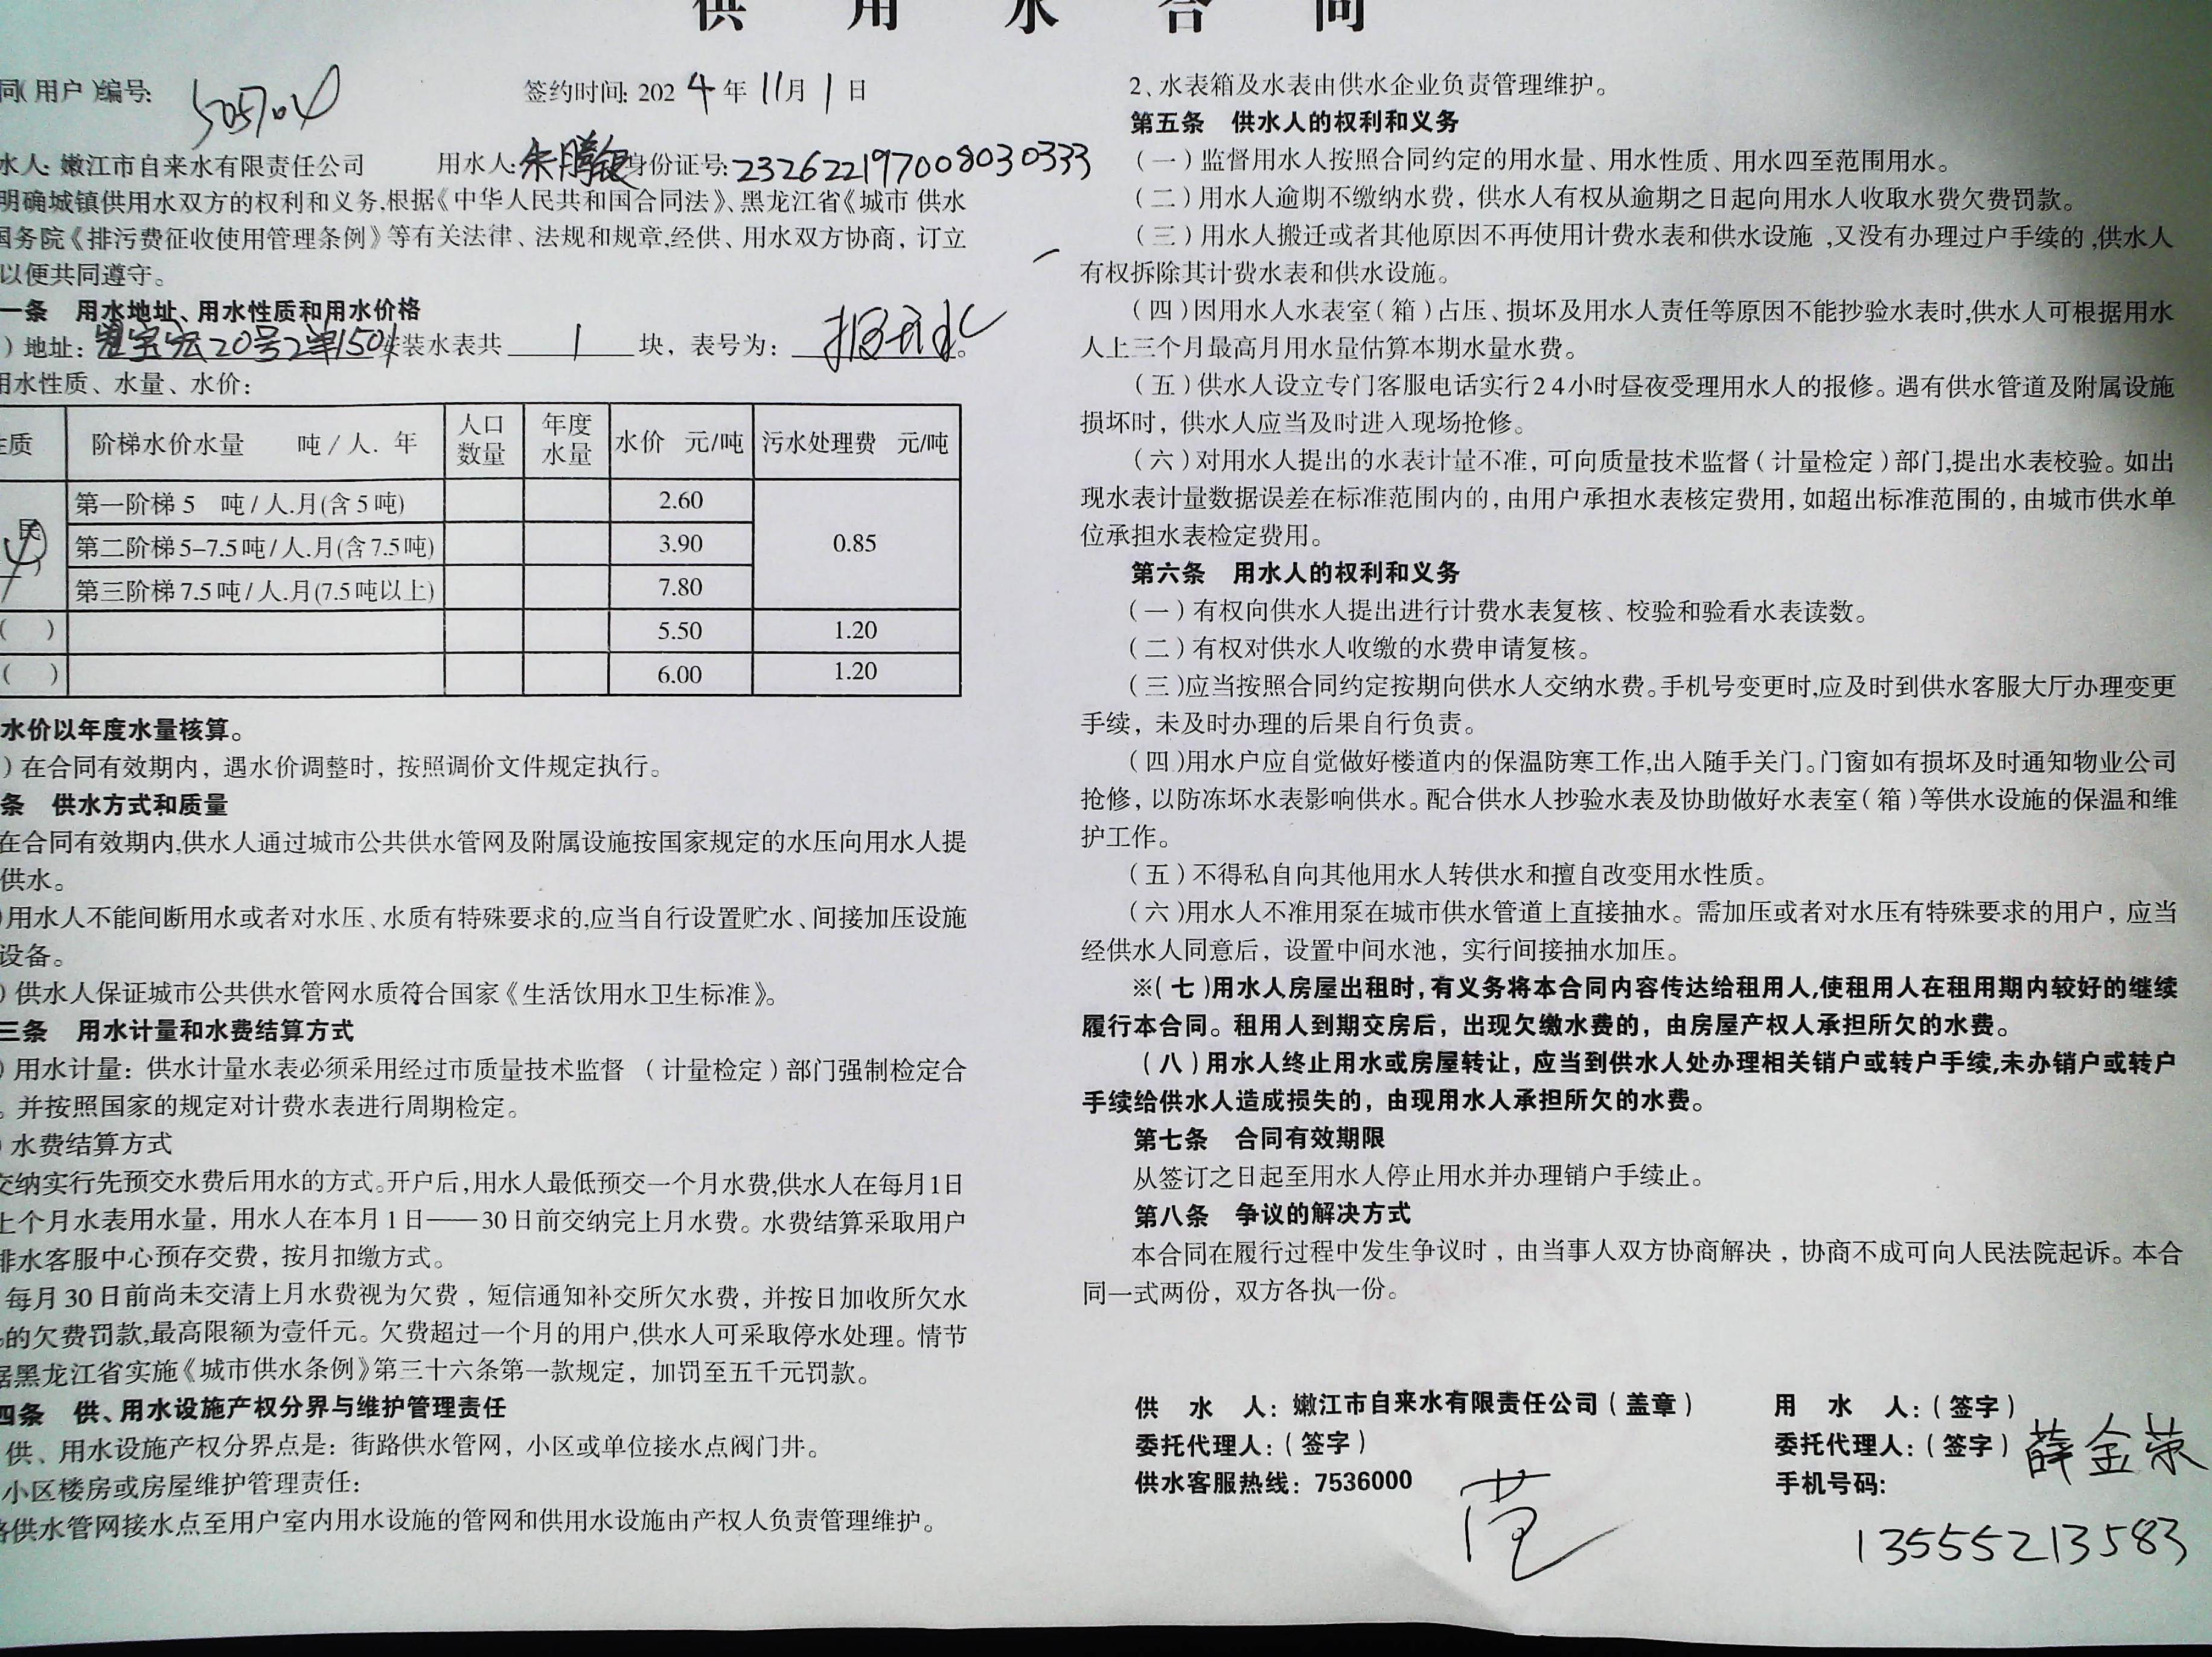 供用水合同
同(用户)编号: 505704
签约时间: 2024年11月1日
水人: 嫩江市自来水有限责任公司 用水人: 朱腾银 身份证号: 232622197008030333
明确城镇供用水双方的权利和义务,根据《中华人民共和国合同法》、黑龙江省《城市 供水
国务院《排污费征收使用管理条例》等有关法律、法规和规章,经供、用水双方协商, 订立
以便共同遵守。
一条 用水地址、用水性质和用水价格
)地址: 20号2单150 装水表共 1 块, 表号为: 。
用水性质、水量、水价:
性质 阶梯水价水量 吨/人. 年 人口数量 年度水量 水价 元/吨 污水处理费 元/吨
民 第一阶梯5 吨/人.月(含5吨) 2.60 0.85
第二阶梯5-7.5吨/人.月(含7.5吨) 3.90
第三阶梯7.5吨/人.月(7.5吨以上) 7.80
( ) 5.50 1.20
( ) 6.00 1.20
水价以年度水量核算。
)在合同有效期内, 遇水价调整时, 按照调价文件规定执行。
条 供水方式和质量
在合同有效期内,供水人通过城市公共供水管网及附属设施按国家规定的水压向用水人提
供水。
)用水人不能间断用水或者对水压、水质有特殊要求的,应当自行设置贮水、间接加压设施
设备。
)供水人保证城市公共供水管网水质符合国家《生活饮用水卫生标准》。
三条 用水计量和水费结算方式
)用水计量: 供水计量水表必须采用经过市质量技术监督 (计量检定)部门强制检定合
。并按照国家的规定对计费水表进行周期检定。
)水费结算方式
交纳实行先预交水费后用水的方式。开户后,用水人最低预交一个月水费,供水人在每月1日
上个月水表用水量, 用水人在本月1日——30日前交纳完上月水费。水费结算采取用户
排水客服中心预存交费, 按月扣缴方式。
每月30日前尚未交清上月水费视为欠费, 短信通知补交所欠水费, 并按日加收所欠水
%的欠费罚款,最高限额为壹仟元。欠费超过一个月的用户,供水人可采取停水处理。情节
据黑龙江省实施《城市供水条例》第三十六条第一款规定, 加罚至五千元罚款。
四条 供、用水设施产权分界与维护管理责任
供、用水设施产权分界点是: 街路供水管网, 小区或单位接水点阀门井。
小区楼房或房屋维护管理责任:
路供水管网接水点至用户室内用水设施的管网和供用水设施由产权人负责管理维护。
2、水表箱及水表由供水企业负责管理维护。
第五条 供水人的权利和义务
(一)监督用水人按照合同约定的用水量、用水性质、用水四至范围用水。
(二)用水人逾期不缴纳水费, 供水人有权从逾期之日起向用水人收取水费欠费罚款。
(三)用水人搬迁或者其他原因不再使用计费水表和供水设施,又没有办理过户手续的,供水人
有权拆除其计费水表和供水设施。
(四)因用水人水表室(箱)占压、损坏及用水人责任等原因不能抄验水表时,供水人可根据用水
人上三个月最高月用水量估算本期水量水费。
(五)供水人设立专门客服电话实行24小时昼夜受理用水人的报修。遇有供水管道及附属设施
损坏时, 供水人应当及时进入现场抢修。
(六)对用水人提出的水表计量不准, 可向质量技术监督(计量检定)部门,提出水表校验。如出
现水表计量数据误差在标准范围内的, 由用户承担水表核定费用, 如超出标准范围的, 由城市供水单
位承担水表检定费用。
第六条 用水人的权利和义务
(一)有权向供水人提出进行计费水表复核、校验和验看水表读数。
(二)有权对供水人收缴的水费申请复核。
(三)应当按照合同约定按期向供水人交纳水费。手机号变更时,应及时到供水客服大厅办理变更
手续, 未及时办理的后果自行负责。
(四)用水户应自觉做好楼道内的保温防寒工作,出入随手关门。门窗如有损坏及时通知物业公司
抢修, 以防冻坏水表影响供水。配合供水人抄验水表及协助做好水表室(箱)等供水设施的保温和维
护工作。
(五)不得私自向其他用水人转供水和擅自改变用水性质。
(六)用水人不准用泵在城市供水管道上直接抽水。需加压或者对水压有特殊要求的用户, 应当
经供水人同意后, 设置中间水池, 实行间接抽水加压。
※(七)用水人房屋出租时,有义务将本合同内容传达给租用人,使租用人在租用期内较好的继续
履行本合同。租用人到期交房后, 出现欠缴水费的, 由房屋产权人承担所欠的水费。
(八)用水人终止用水或房屋转让, 应当到供水人处办理相关销户或转户手续,未办销户或转户
手续给供水人造成损失的, 由现用水人承担所欠的水费。
第七条 合同有效期限
从签订之日起至用水人停止用水并办理销户手续止。
第八条 争议的解决方式
本合同在履行过程中发生争议时, 由当事人双方协商解决, 协商不成可向人民法院起诉。本合
同一式两份, 双方各执一份。
供 水 人: 嫩江市自来水有限责任公司(盖章) 用 水 人:(签字)
委托代理人:(签字) 范 委托代理人:(签字) 薛金荣
供水客服热线: 7536000 手机号码:
13555213583